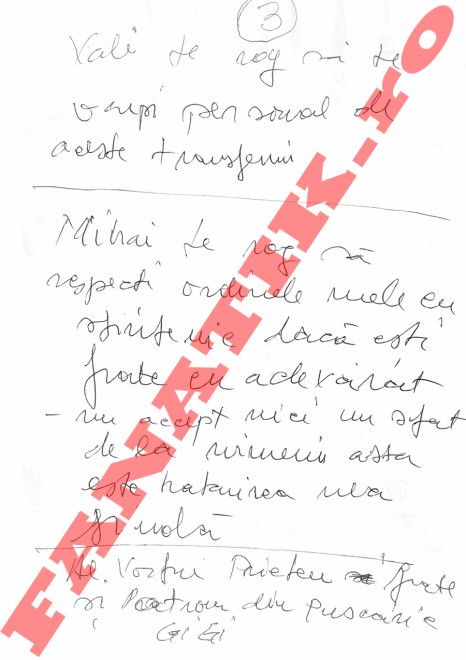 3
Vali te rog să te
ocupi personal de
aceste transferuri
Mihai te rog să
respecti ordinele mele cu
strictețe dacă ești
frate cu adevărat
- nu accept nici un sfat
de la nimeni asta
este hotarirea mea
finală
Al. Vostru Prieten frate
și Patron din pușcărie
GiGi
FANATIK.rO